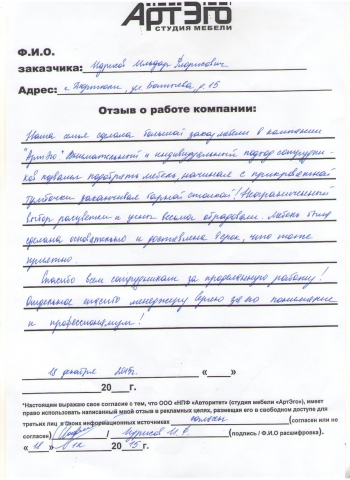 АртЭго
СТУДИЯ МЕБЕЛИ
Ф.И.О.
заказчика: Идрисов Ильдар
Адрес: г. ул. д. 15
Отзыв о работе компании:
Наша семья сделала большой заказ мебели в компании
"АртЭго". Внимательный и индивидуальный подход сотрудни-
ков позволил подобрать мебель, начиная с прикроватной
тумбочки заканчивая барной стойкой! Неограниченный
выбор расцветки и цены весьма обрадовали. Мебель была
сделана и доставлена в срок, что тоже
приятно.
Спасибо всем сотрудникам за проделанную работу!
Отдельное спасибо менеджеру за понимание
и профессионализм!
18 декабря 2015г. «___»
20___г.
*Настоящим выражаю свое согласие с тем, что ООО «НПФ «Авторитет» (студия мебели «АртЭго»), имеет
право использовать написанный мной отзыв в рекламных целях, размещая его в свободном доступе для
третьих лиц в своих информационных источниках согласен (согласен или не
согласен) / Идрисов И.Г. (подпись / Ф.И.О расшифровка).
« 18 » 12 20 15 г.